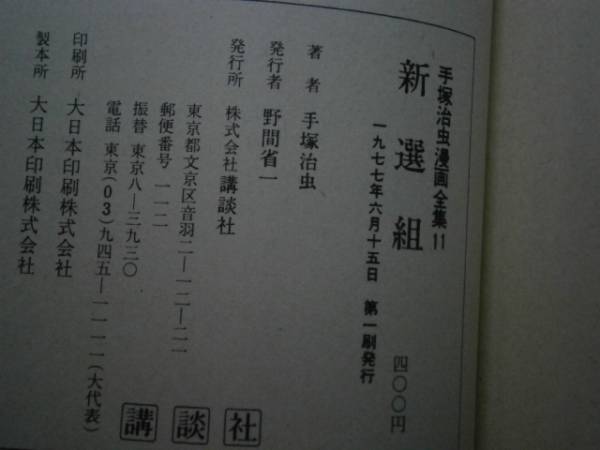 手塚治虫漫画全集11
新選組
一九七七年六月十五日 第一刷発行
四〇〇円
著者 手塚治虫
発行者 野間省一
発行所 株式会社講談社
東京都文京区音羽二—一二—二一
郵便番号 一一二
振替 東京八—三九三〇
電話 東京(03)九四五—一一一一(大代表)
印刷所 大日本印刷株式会社
製本所 大日本印刷株式会社
講談社